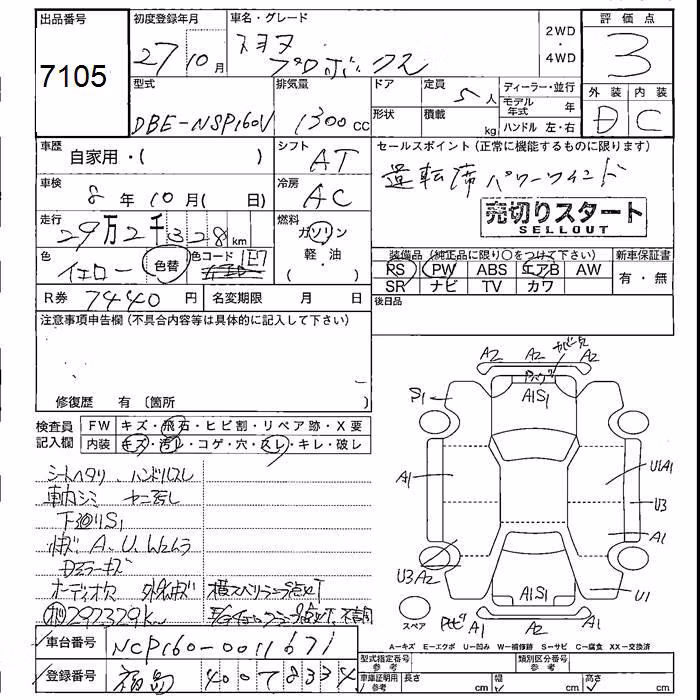 出品番号 初度登録年月 車名・グレード 評価点
7105 27 10月 トヨタ プロボックス 2WD・4WD 3
型式 排気量 ドア 定員 5人 ディーラー・並行 外装 内装
DBE-NSP160V 1300cc 形状 積載 kg モデル年式 年 D C
ハンドル 左・右
車歴 自家用・( ) シフト AT セールスポイント(正常に機能するものに限ります)
車検 8年10月( 日) 冷房 AC 運転席パワーウインド
売切りスタート
SELLOUT
走行 29万2千328km 燃料 ガソリン 軽・油 ( ・ )
色 イエロー 色替 色コード 1E7
装備品(純正品に限り○をつけて下さい) 新車保証書
PS PW ABS エアB AW 有・無
SR ナビ TV カワ
R券 7440円 名変期限 月 日 後日品
注意事項申告欄(不具合内容等は具体的に記入して下さい)
修復歴 有 〔箇所 〕
検査員記入欄 FW キズ・飛石・ヒビ割・リペア跡・X要
内装 キズ・汚レ・コゲ・穴・スレ・キレ・破レ
シートヘタリ、ハンドルスレ
車内シミ ヤニ汚レ
下廻りS1
小キズ A、U、Wムラ
ドアミラーキズ
オーディオ欠 外小キズ 横スベリランプ点灯
292329km
車台番号 NCP160-0011671
登録番号 福島 400 7 8334
A2 A2 A2
S1 A1S1
A1 U1A1
U3
A1
U3A2 A1S1 U1
スペア A1 A2 A1
A－キズ E－エクボ U－凹み W－補修跡 S－サビ C－腐食 XX－交換済
型式指定番号 類別区分番号
車庫証明用参考 長さ cm 幅 cm 高さ cm